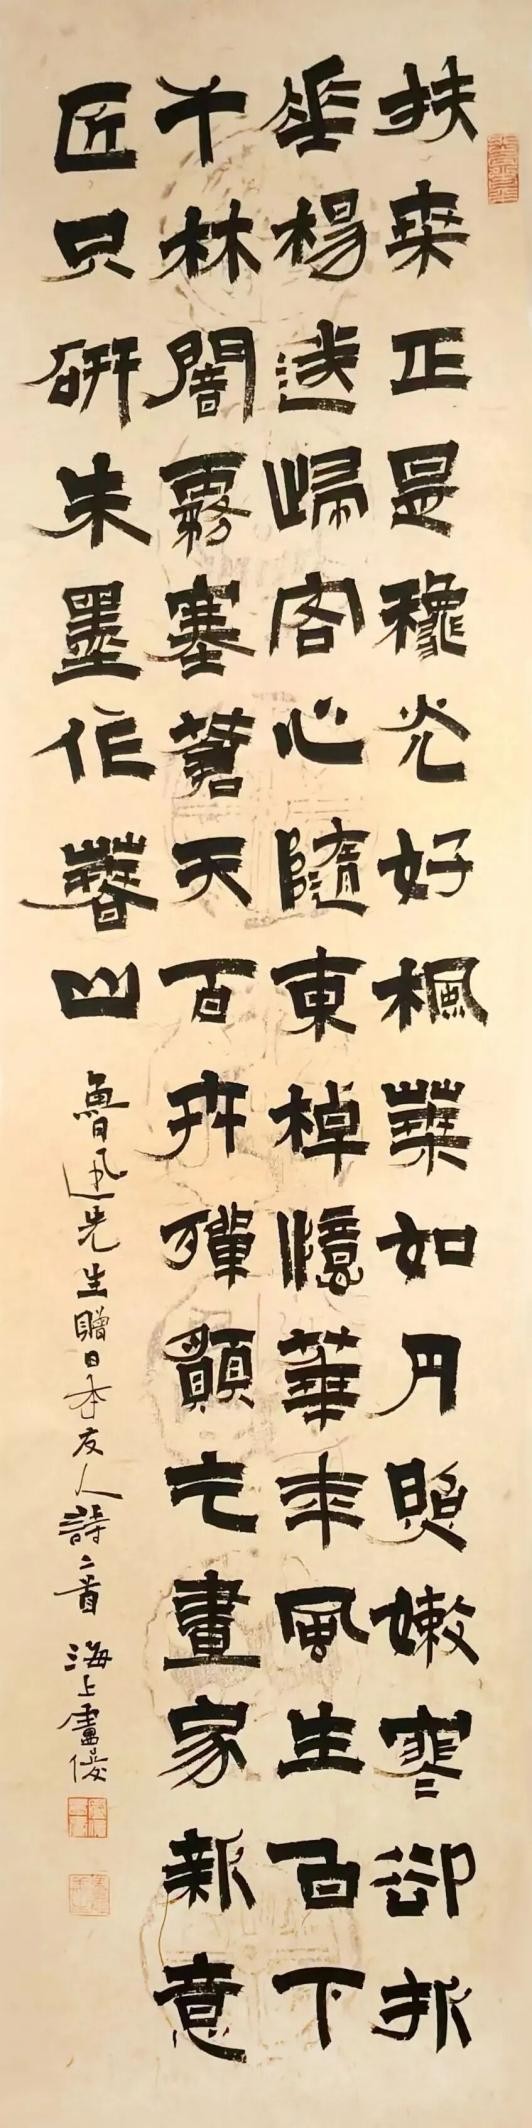 扶桑正是穐光好楓葉如丹照嫩寒卻折
垂楊送歸客心隨東棹憶華年風生白下
千林闇霧塞蒼天百卉殫願乞畫家新意
匠只研朱墨作春山
魯迅先生贈日本友人詩二首 海上盧